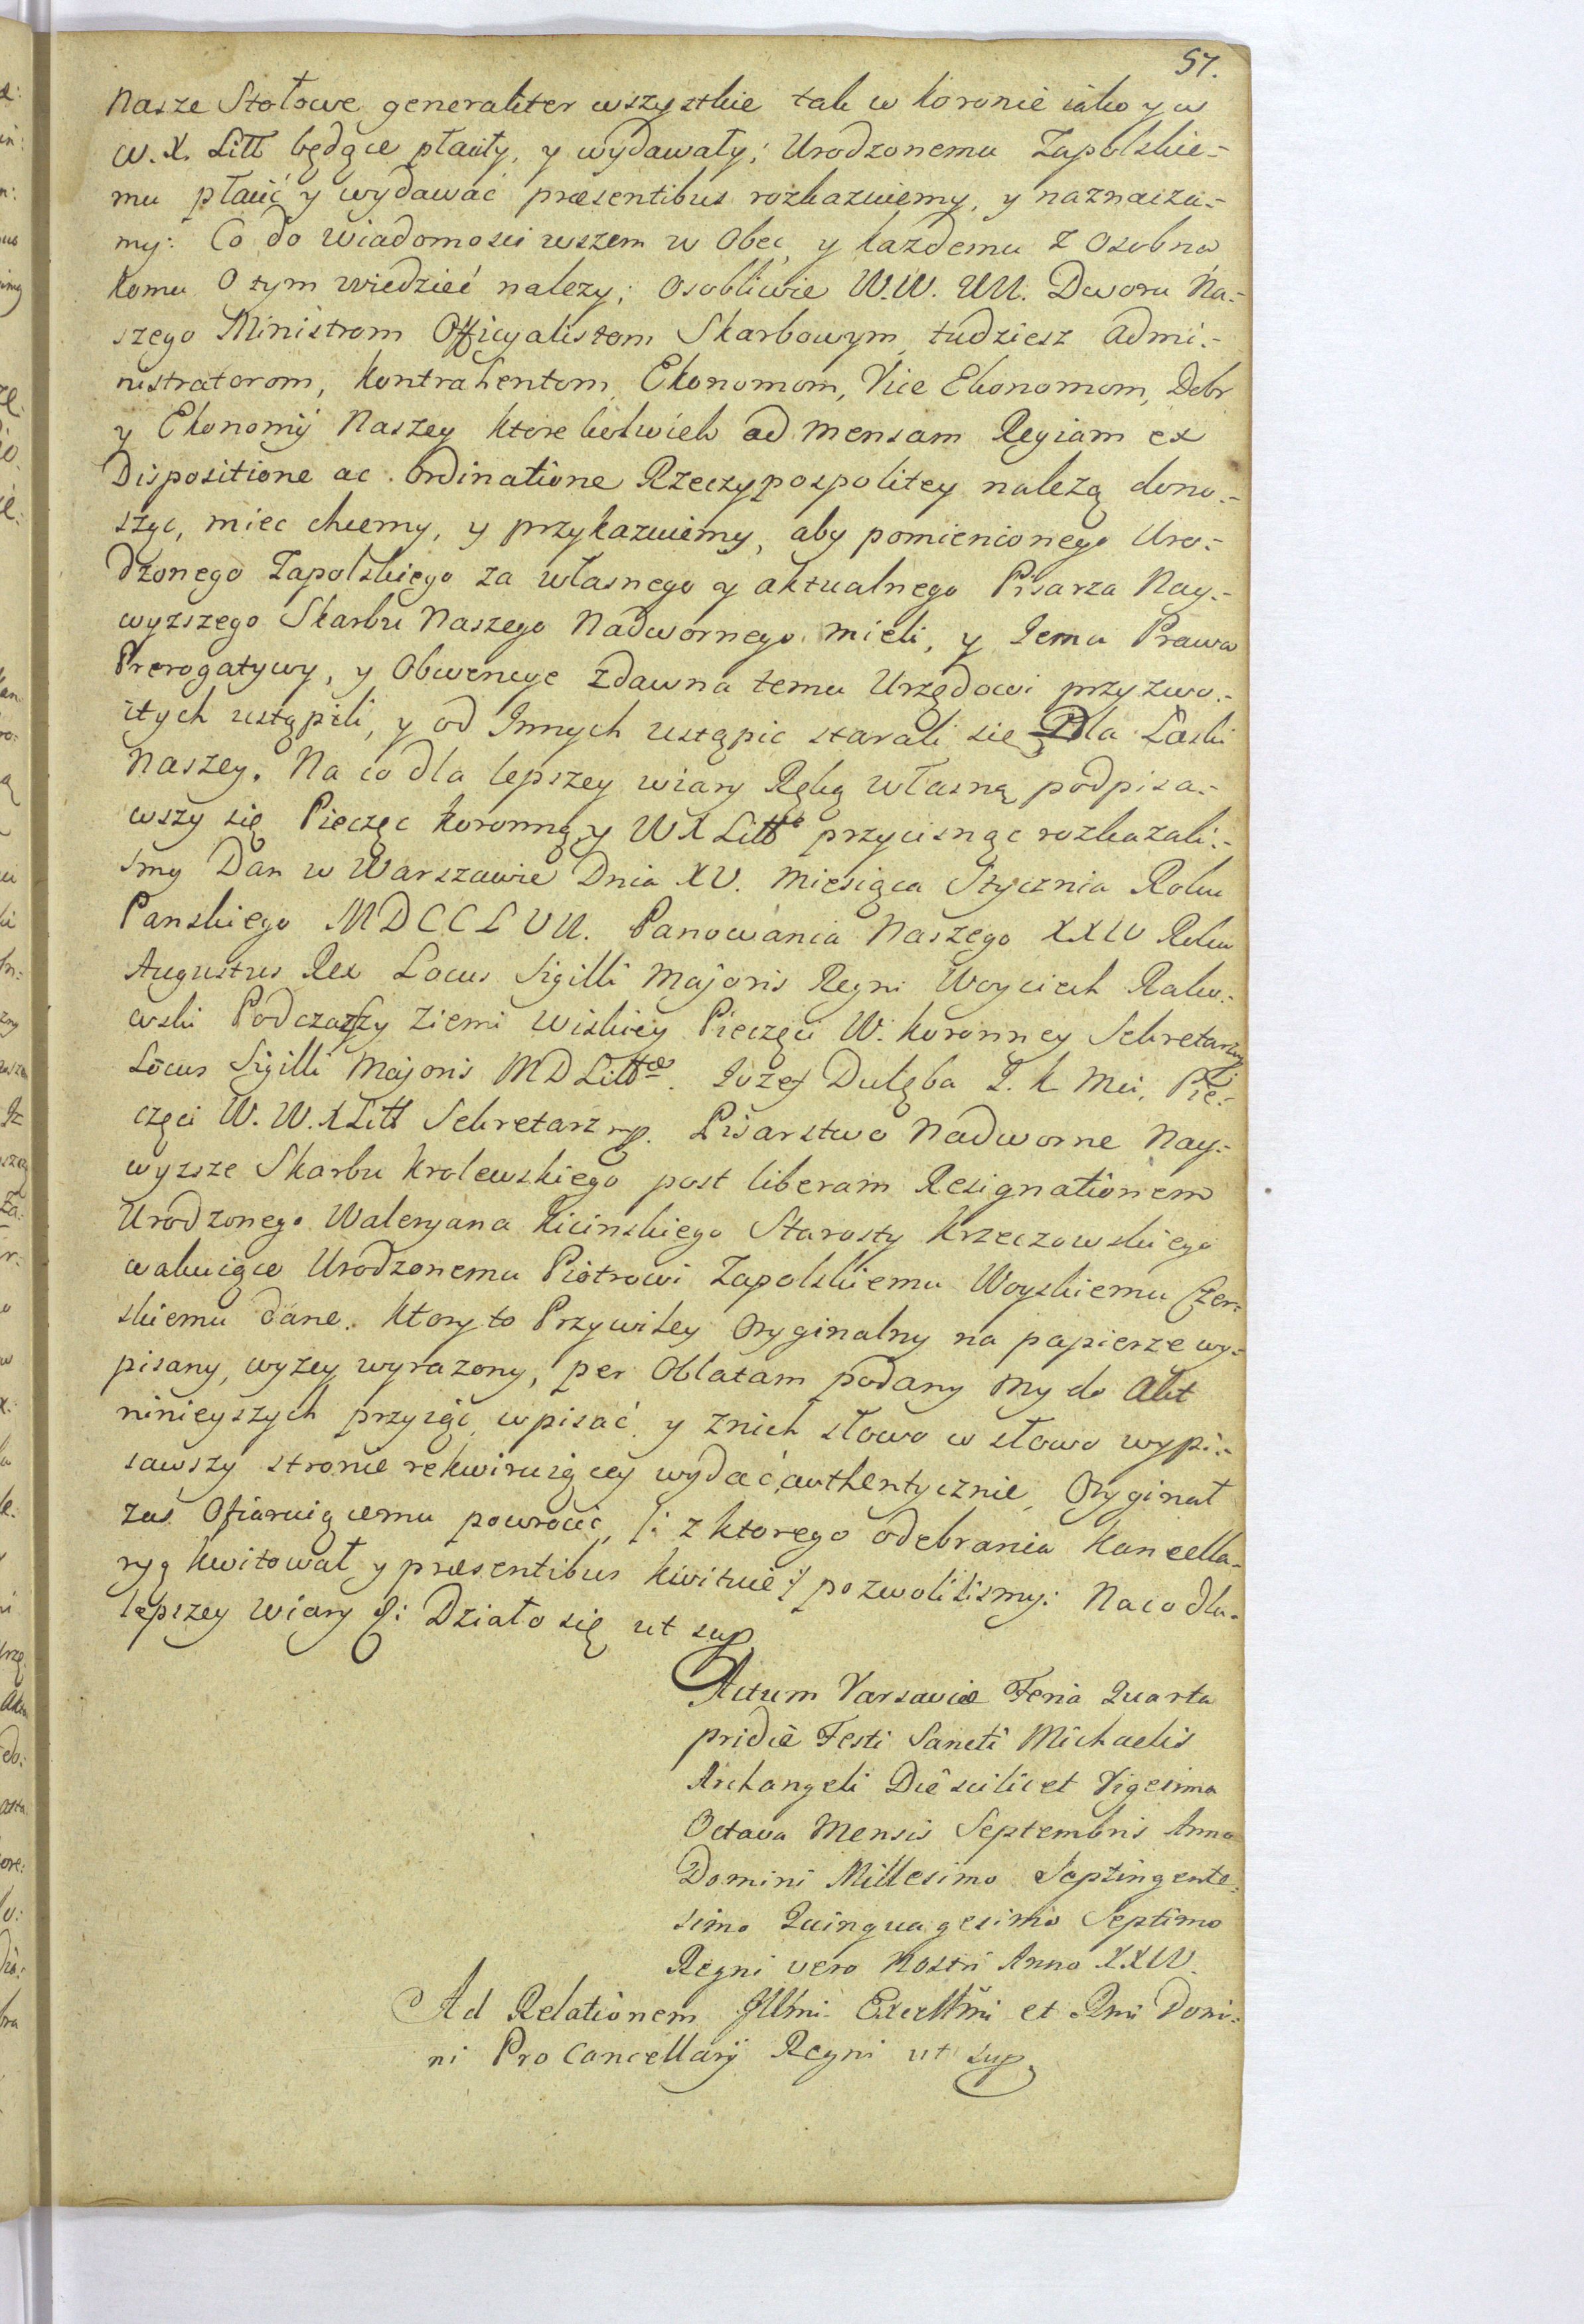 57.
Nasze Stołowe generaliter wszystkie tak w Koronie iako y w
W. X. Litt będące płaciły, y wydawały; Urodzonemu Zapolskie=
mu płacić y wydawać præsentibus rozkazuiemy, y naznacza=
my: Co do wiadomosci wszem w Obec, y każdemu z Osobna
komu O tym wiedzieć nalezy; Osobliwie W.W. UU. Dworu Na=
szego Ministrom Officyalistom Skarbowym, tudziesz Admi=
nistratorom, Kontrahentom, Ekonomom, Vice Ekonomom, Dobr
y Ekonomÿ Naszey ktore kolwiek ad Mensam Regiam ex
Dispositione ac Ordinatione Rzeczypospolitey należą dono=
sząc, miec chcemy, y przykazuiemy, aby pomienionego Uro=
dzonego Zapolskiego za własnego y aktualnego Pisarza Nay=
wyzszego Skarbu Naszego Nadwornego mieli, y Iemu Prawa
Prerogatywy, y Obwencye zdawna temu Urzędowi przyzwo=
itych ustąpili, y od Innych ustąpic starali się Dla Łaski
Naszey. Na co dla lepszey wiary Ręką własną podpisa=
wszy się Pieczęc Koronną y WXLitt przycisnąc rozkazali=
smy Dan w Warszawie Dnia XV. Miesiąca Stycznia Roku
Panskiego MDCCLVII. Panowania Naszego XXIV Roku
Augustus Rex Locus Sigilli Majoris Regni Woyciech Rako=
wski Podczaszy Ziemi Wiskiey Pieczęci W. Koronney Sekretarz mp
Locus Sigilli Majoris MDLittæ. Iozef Dulęba T. K. Mci, Pie=
częci W. W.XLitt Sekretarz mp. Pisarstwo Nadworne Nay=
wyzsze Skarbu Krolewskiego post liberam Resignationem
Urodzonego Waleryana Kicinskiego Starosty Krzeczowskiego
wakuiące Urodzonemu Piotrowi Zapolskiemu Woyskiemu Czer=
skiemu dane. Ktory to Przywiley Oryginalny na papierze wy=
pisany, wyzey wyrazony, per Oblatam podany My do Akt
ninieyszych przyiąć, wpisać, y znich słowo w słowo wypi=
sawszy stronie rekwiruiącey wydać authentycznie, Oryginał
zaś Ofiaruiącemu powrocić, /: z ktorego odebrania Kancella=
ryą kwitował y præsentibus kwituie :/ pozwolilismy: Na co dla
lepszey Wiary &: Działo się ut sup
Actum Varsaviæ Feria Quarta
pridiê Festi Sancti Michaelis
Archangeli Diê scilicet Vigesima
Octava Mensis Septembris Anno
Domini Millesimo Septingente=
simo Quinquagesimo Septimo
Regni vero Nostri Anno XXIV.
Ad Relationem Illmi Excellmi et Rmi Domi=
ni Pro Cancellarÿ Regni ut sup